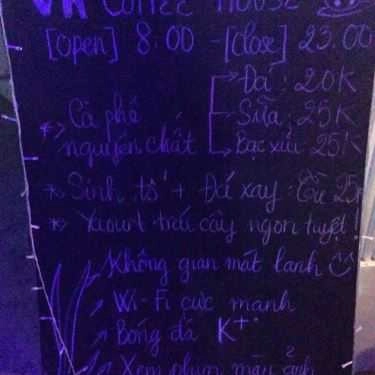 COFFEE HOUSE
[open] 8:00 - [close] 23.00
Đá : 20K
* Cà phê Sữa : 25K
nguyên chất Bạc xỉu : 25K
* Sinh tố + Đá xay : Từ 25
* Yaourt trái cây ngon tuyệt !
Không gian mát lạnh
Wi-Fi cực mạnh
Bóng đá K+
Xem phim màn ảnh